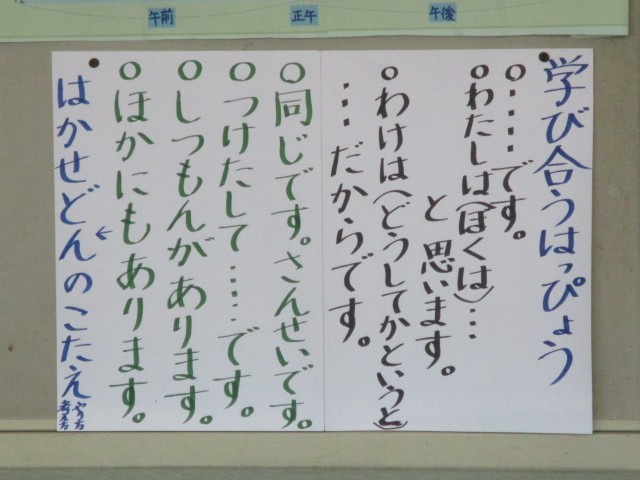 午前
正午
午後
学び合うはっぴょう
○‥‥です。
○わたしは(ぼくは)…
と思います。
○わけは(どうしてかというと)
‥‥だからです。
○同じです。さんせいです。
○つけたして‥‥です。
○しつもんがあります。
○ほかにもあります。
はかせどんのこたえ
やり方
考え方